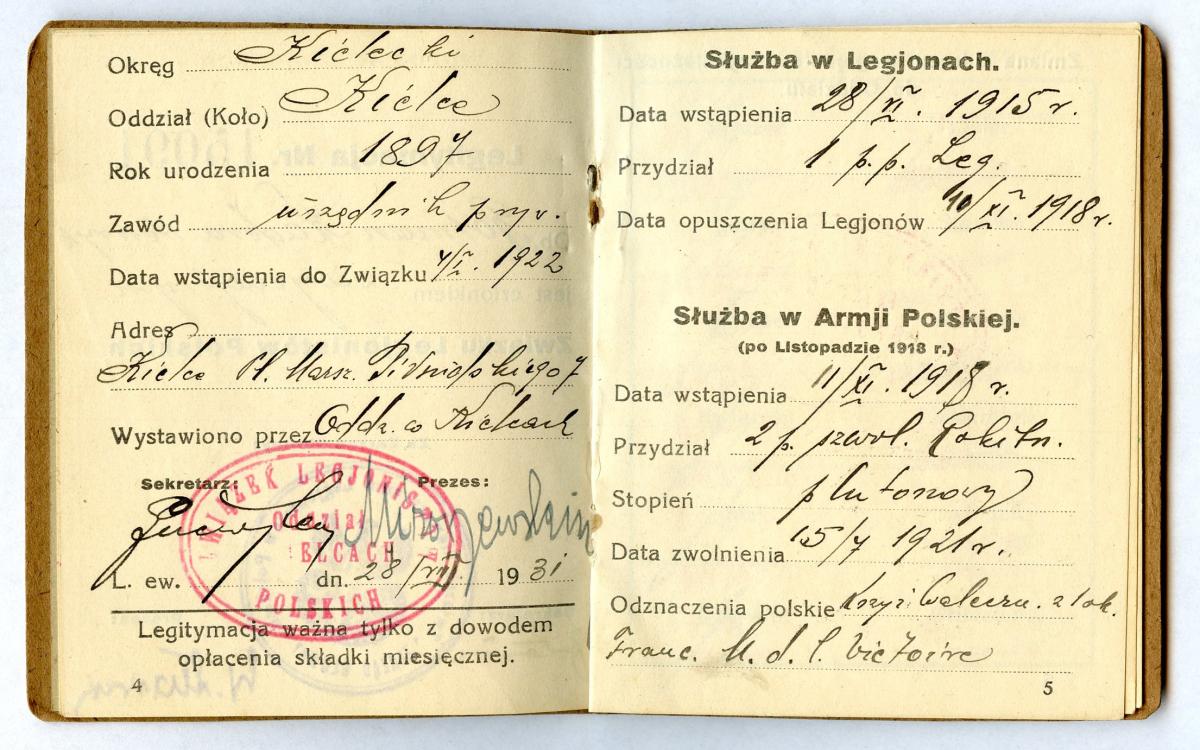 Okręg Kielecki
Oddział (Koło) Kielce
Rok urodzenia 1897
Zawód urzędnik pryw.
Data wstąpienia do Związku 4/I. 1922
Adres
Kielce Pl. Marsz. Piłsudskiego 7
Wystawiono przez Oddz. w Kielcach
Sekretarz: Prezes:
ZWIĄZEK LEGJONISTÓW
Oddział
KIELCACH
POLSKICH
L. ew. dn. 28/VII 1931
Legitymacja ważna tylko z dowodem
opłacenia składki miesięcznej.
4
Służba w Legjonach.
Data wstąpienia 28/VI. 1915 r.
Przydział 1 p. p. Leg.
Data opuszczenia Legjonów 10/XI. 1918 r.
Służba w Armji Polskiej.
(po Listopadzie 1918 r.)
Data wstąpienia 11/XI. 1918 r.
Przydział 2 p. szwol. Rokitn.
Stopień plutonowy
Data zwolnienia 15/7 1921 r.
Odznaczenia polskie Krzyż Waleczn. z 1 ok.
Franc. M. d. l. Victoire
5